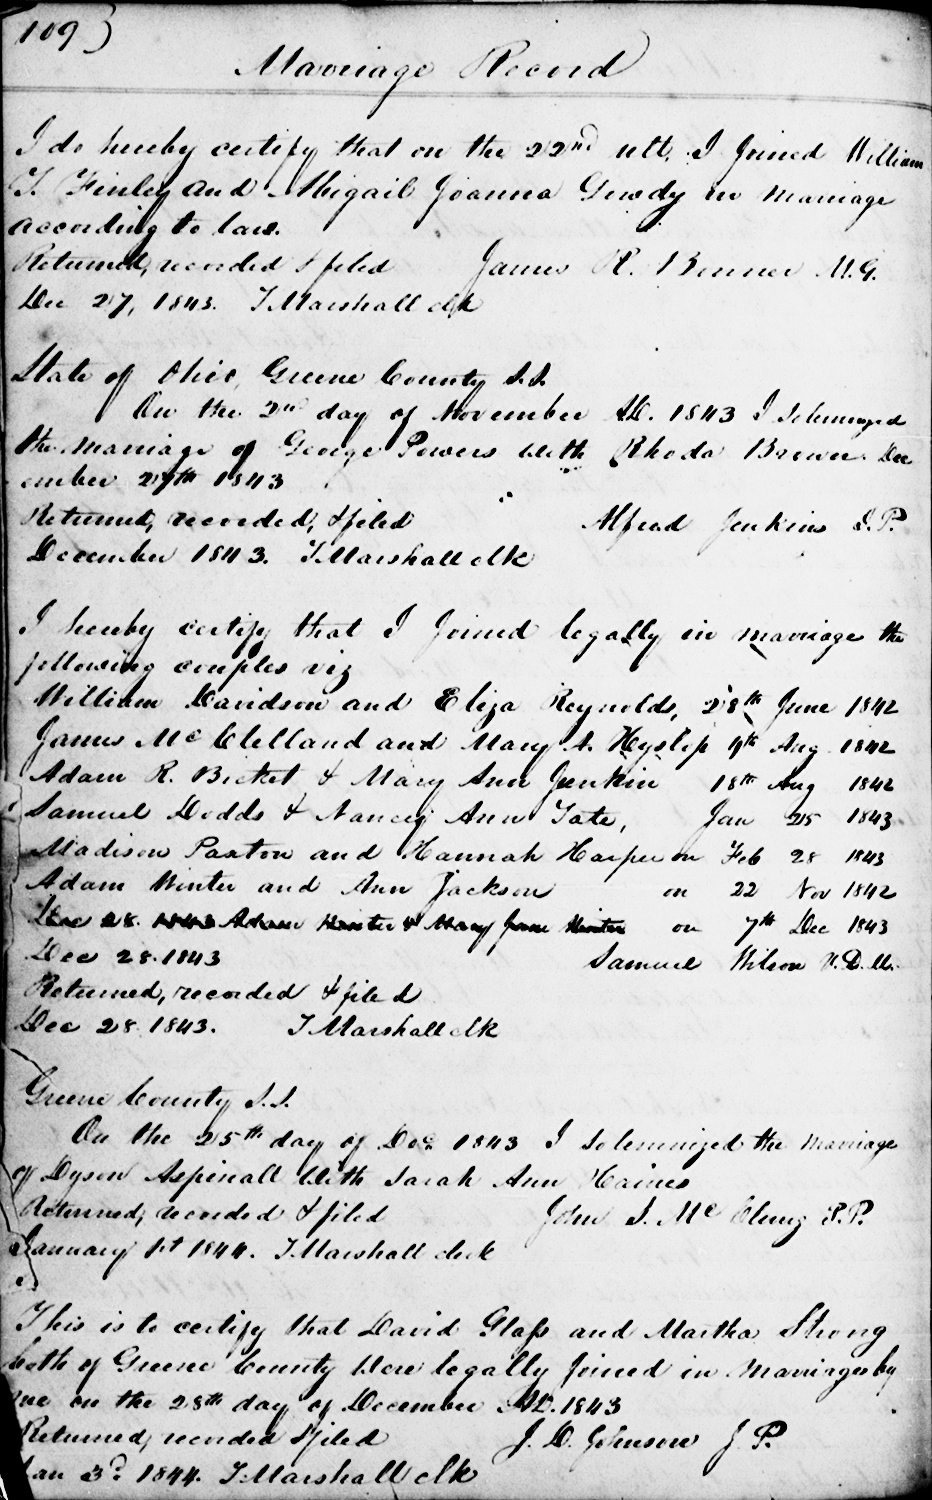 109)
Marriage Record
I do hereby certify that on the 22nd ult. I joined William
T. Finley and Abigail Joanna Gowdy in marriage
according to law.
Returned, recorded & filed James R. Bonner M.G.
Dec 27, 1843. T Marshall clk
State of Ohio, Greene County S.S.
On the 2nd day of November AD. 1843 I solemnized
the marriage of George Powers with Rhoda Brewer. Dec
ember 27th 1843
Returned, recorded, & filed Alfred Jenkins J.P.
December 1843. T Marshall clk
I hereby certify that I joined legally in marriage the
following couples viz
William Davidson and Eliza Reynolds, 28th June 1842
James McClelland and Mary A. Hyslip 4th Aug 1842
Adam R. Bicket & Mary Ann Junkin 18th Aug 1842
Samuel Dodds & Nancy Ann Tate, Jan 25 1843
Madison Paxton and Hannah Harper on Feb 28 1843
Adam Winter and Ann Jackson on 22 Nov 1842
Dec 28. 1843 Adam Winter & Mary Jane Winter on 7th Dec 1843
Dec 28. 1843 Samuel Wilson V.D.M.
Returned, recorded & filed
Dec 28. 1843. T Marshall clk
Greene County S.S.
On the 25th day of Dec 1843 I solemnized the marriage
of Dyson Aspinall with Sarah Ann Haines
Returned, recorded & filed John S. McClung J.P.
January 1st 1844. T Marshall clerk
This is to certify that David Glass and Martha Strong
both of Greene County were legally joined in marriage by
me on the 28th day of December AD. 1843
Returned, recorded & filed J. D. Johnson J.P.
Jan 3d 1844. T Marshall clk